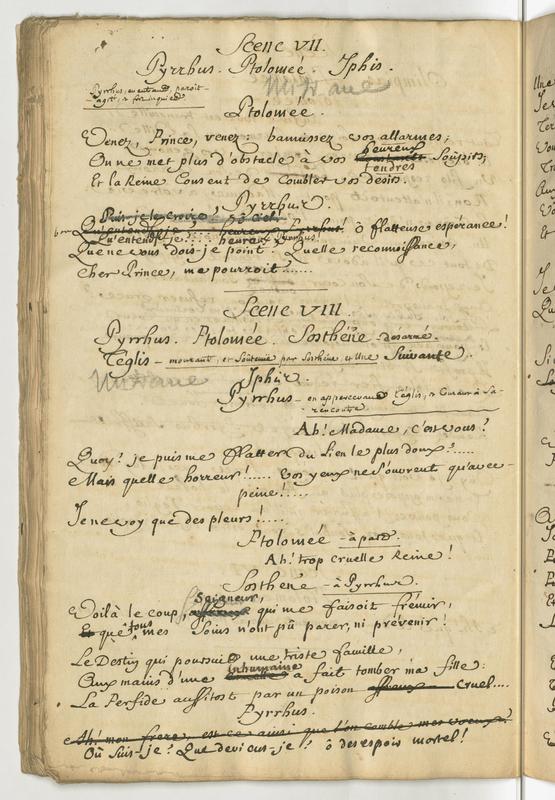 Scene VII.
Pyrrhus. Ptolomée. Iphis.
Mitrane
Pyrrhus, en entrand, paroit
agité, & fort inquied
Ptolomée.
Venez, Prince, venez: bannissez vos allarmes;
On ne met plus d'obstacle à vos heureux constants tendres Soupirs;
Et la Reine Consent de Combler vos desirs.
Pyrrhus.
Puis-je le croire, ô Ciel!
Qu'entend-je? heureux Pyrrhus! ô flatteuse espérance!
Qu'entend-je? .... heureux Pyrrhus!
Que ne vous dois-je point! Quelle reconnoissance,
Cher Prince, me pourroit ......
Scene VIII.
Pyrrhus. Ptolomée. Sosthéne desarmé.
Téglis - mourant, et Soûtenüe par Sosthéne, et Une Suivante.
Mitrane
Iphis.
Pyrrhus - en appercevand Téglis, & Courant à Sa
rencontre
Ah! Madame, c'est vous?
Quoy? je puis me flatter du Lien le plus doux? .....
Mais quelle horreur! ..... Vos yeux ne s'ouvrent qu'avec
peine! .....
Je ne voy que des pleurs! .....
Ptolomée - à pard.
Ah! trop cruelle Reine!
Sosthéne - à Pyrrhus.
Voilà le coup, Seigneur, qui me faisoit frémir,
Et que tous mes Soins n'ont pû parer, ni prévenir!
Le Destin qui poursuit une triste famille,
Aux mains d'une Inhumaine a fait tomber ma fille:
La Perfide aussitost par un poison affreux Cruel....
Pyrrhus.
Ah! mon frere, est-ce ainsi que l'on comble mes voeux?
Où Suis-je? Que deviens-je? ô desespoir mortel!